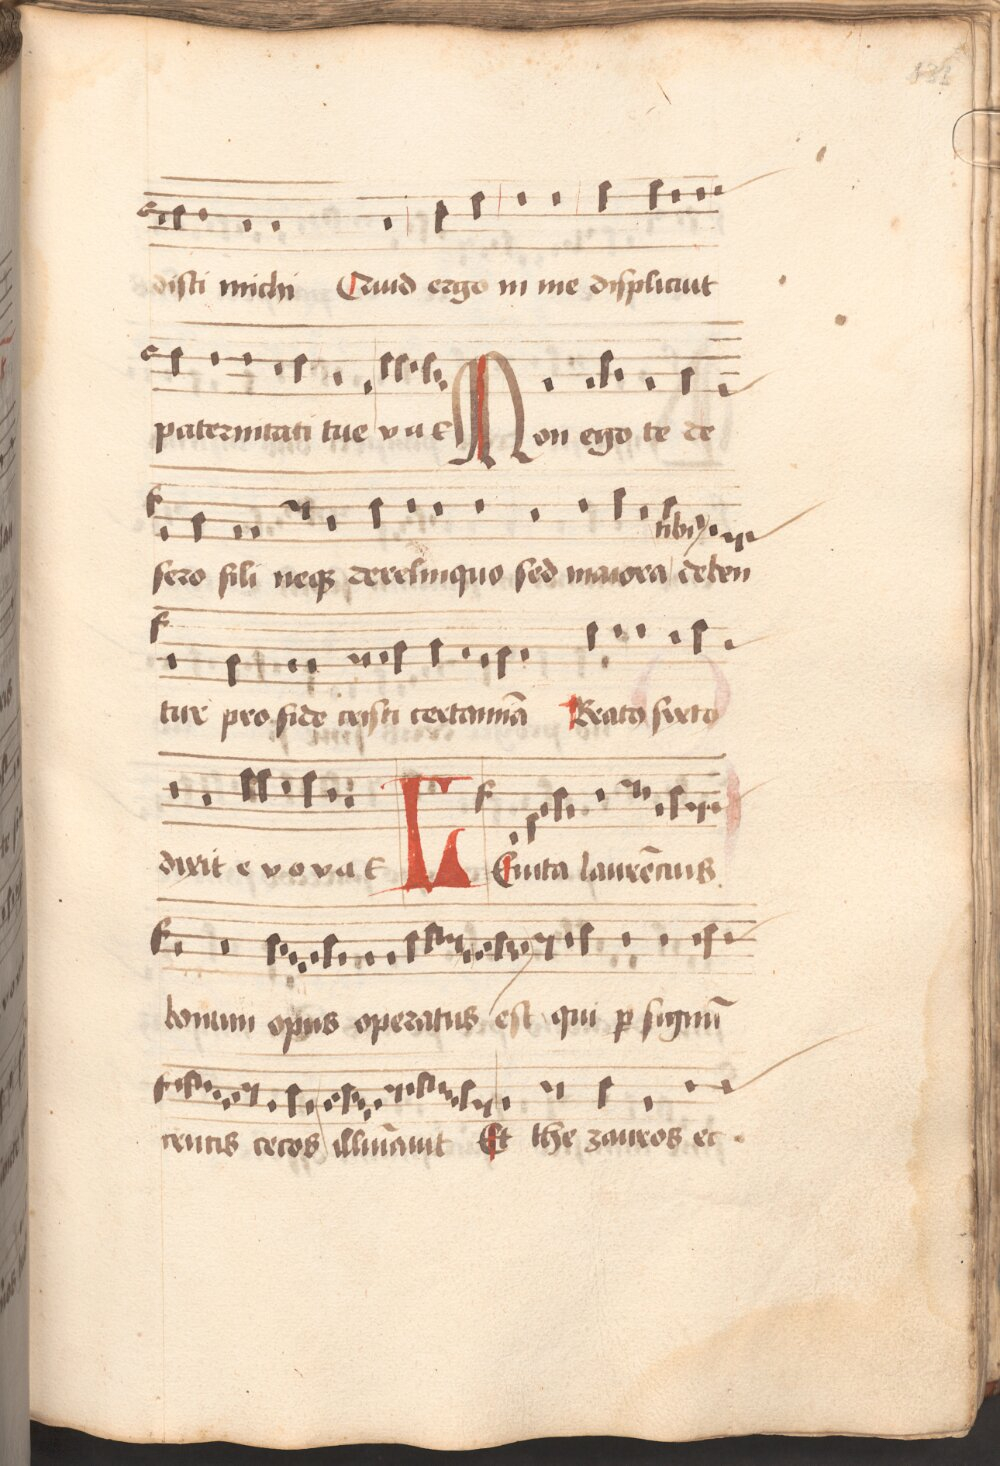 disti michi Quid ergo in me displicuit
paternitati tue v a e Non ego te de
sero fili neqꝫ derelinquo sed maiora tibi deben
tur pro fide cristi certamīa Beato sixto
dixit e v o v a e Leuita laurēcius
bonum opus operatus est qui ꝑ signū
crucis cecos illuīauit Et thezauros ec